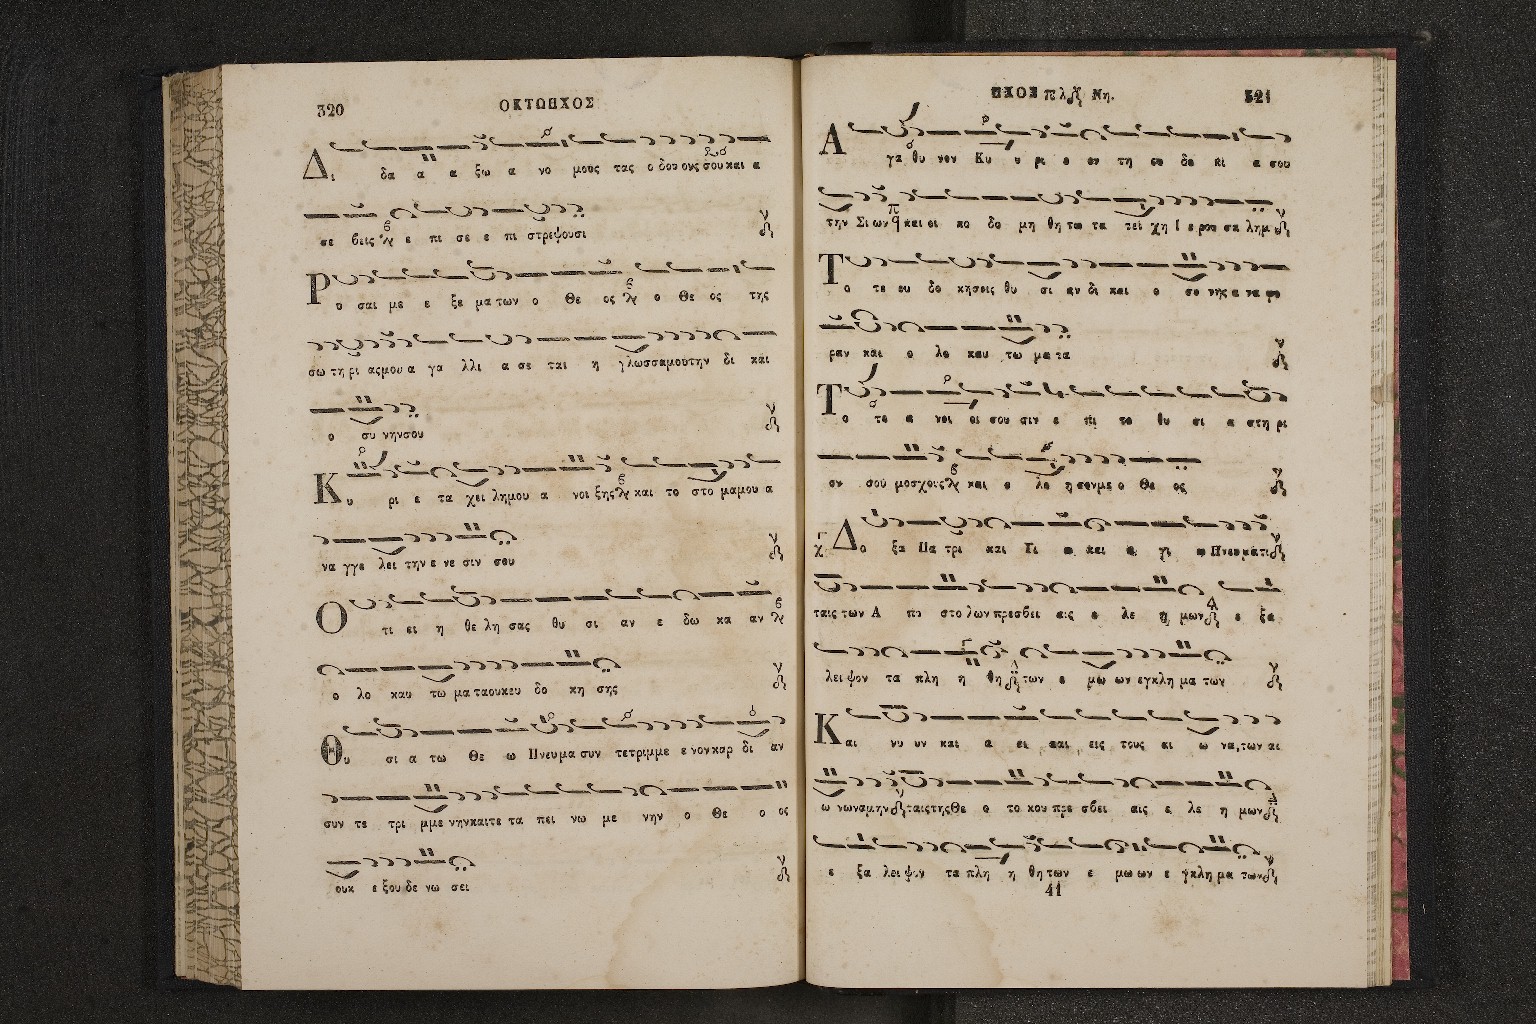 320
ΟΚΤΩΗΧΟΣ
Δι δα α α ξω α νο μους τας ο δου ους σου και α
σε βεις ε πι σε ε πι στρεψουσι
Ρ υ σαι με ε ξε μα των ο Θε ος ο Θε ος της
σω τη ρι ας μου α γα λλι α σε ται η γλωσσα μου την δι και
ο συ νην σου
Κυ ρι ε τα χει λη μου α νοι ξης και το στο μα μου α
να γγε λει την ε νε σιν σου
Ο τι ει η θε λη σας θυ σι αν ε δω κα αν
ο λο καυ τω μα τα ουκ ευ δο κη σης
Θυ σι α τω Θε ω Πνευμα συν τετριμμε ε νον καρ δι αν
συν τε τρι μμε νην και τε τα πει νω με νην ο Θε ο ος
ουκ ε ξου δε νω σει
ΗΧΟΣ πλ Νη.
321
Α γα θυ νον Κυ υ ρι ε εν τη ευ δο κι α σου
την Σι ων και οι κο δο μη θη τω τα τει χη Ι ε ρου σα λημ
Τ ο τε ευ δο κησεις θυ σι αν δι και ο συ νης α να φο
ραν και ο λο καυ τω μα τα
Τ ο τε α νοι οι σου σιν ε πι το θυ σι α στη ρι
ον σου μοσχους και ε λε η σον με ο Θε ος
Δ ο ξα Πα τρι και Υι ω και α γι ω Πνευματι
ταις των Α πο στο λων πρεσβει αις ε λε η μων ε ξα
λει ψον τα πλη η θη των ε μω ων εγκλη μα των
Και νυ υν και α ει και εις τους αι ω να, των αι
ω νων αμην ταις της Θε ο το κου πρε σβει αις ε λε η μων
ε ξα λει ψον τα πλη η θη των ε μω ων ε γκλη μα των
41